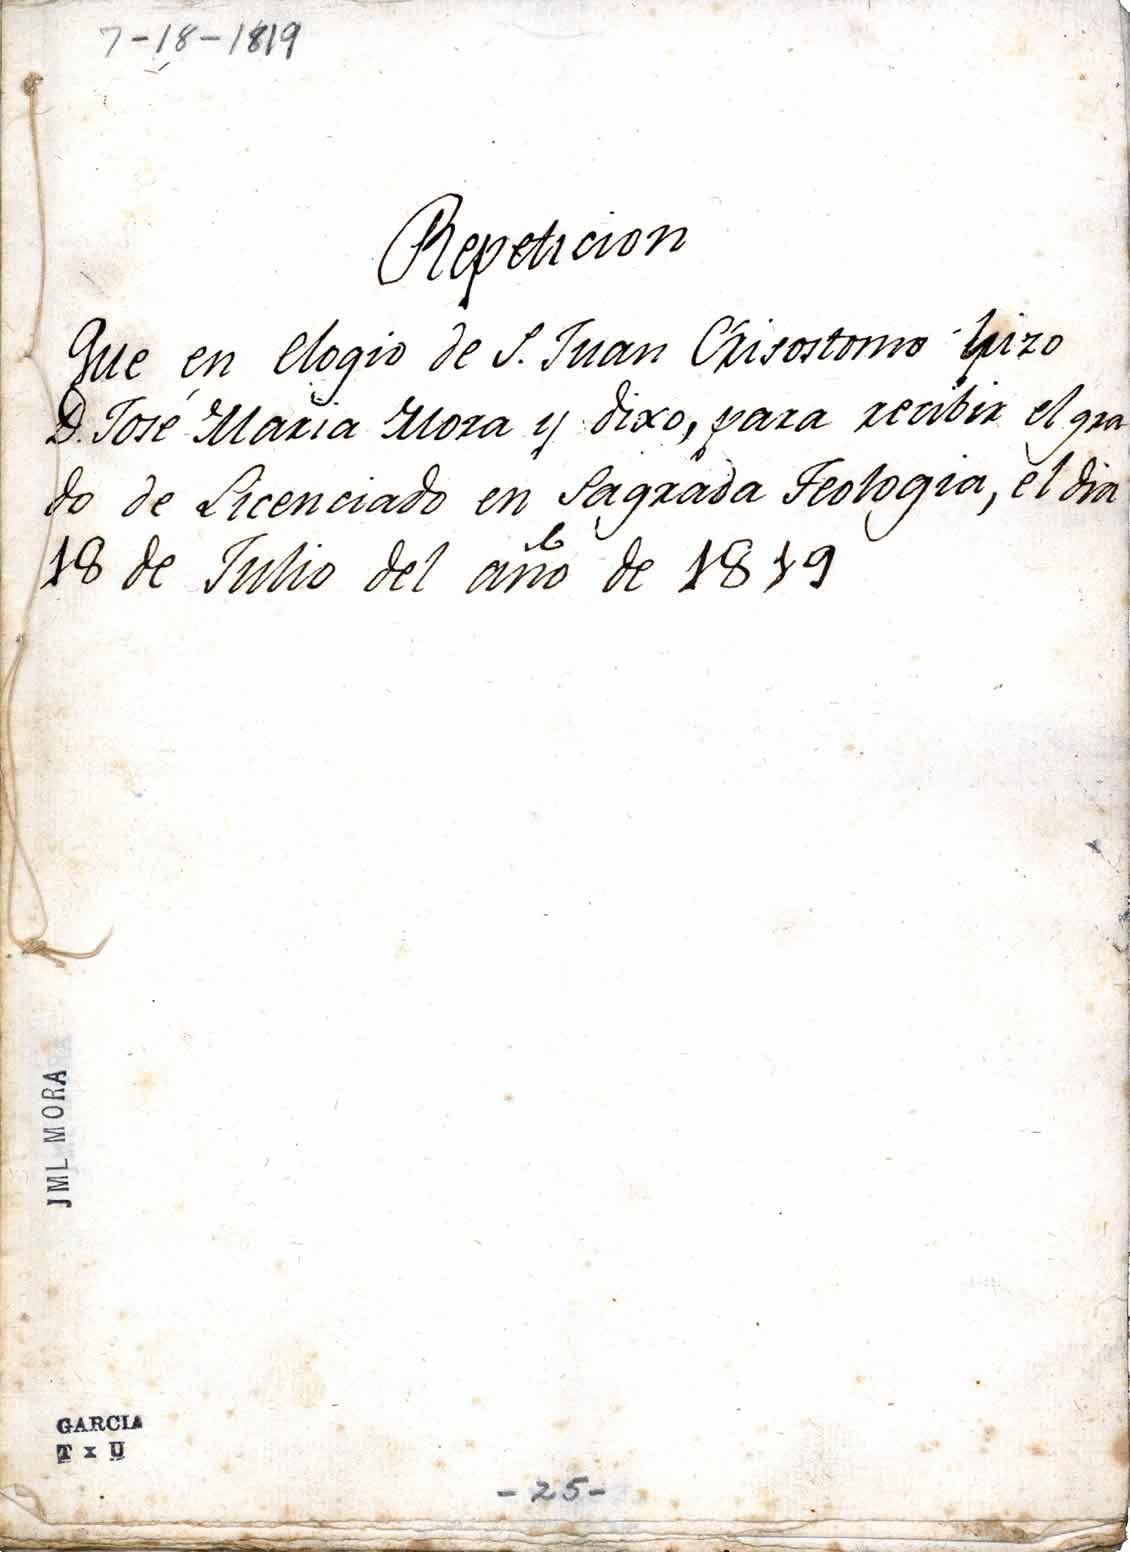 7-18-1819
Repeticion
Que en elogio de S. Juan Chrisostomo hizo
D. José Maria Mora y dixo, para recibir el gra
do de Licenciado en Sagrada Teologia, el dia
18 de Julio del año de 1819
JML MORA
GARCIA
T x U
- 25 -